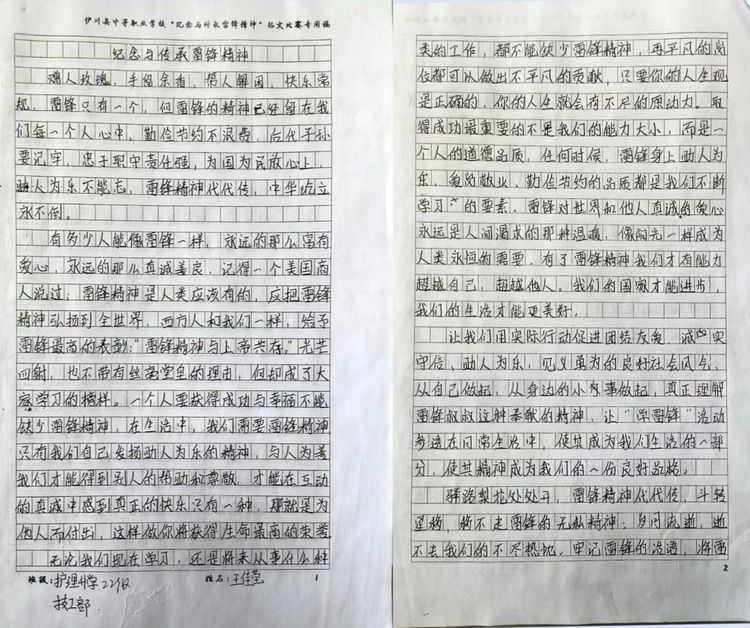 伊川县中等职业学校“纪念与传承雷锋精神”征文比赛专用稿
纪念与传承雷锋精神
赠人玫瑰，手留余香，帮人解困，快乐常
规，雷锋只有一个，但雷锋的精神已经留在我
们每一个人心中，勤俭节约不浪费，后代子孙
要记牢，忠于职守责任强，为国为民放心上，
助人为乐不能忘，雷锋精神代代传，中华屹立
永不倒。
有多少人能像雷锋一样，永远的那么富有
爱心，永远的那么真诚善良，记得一个美国商
人说过：雷锋精神是人类应该有的，应把雷锋
精神弘扬到全世界，西方人和我们一样，给予
雷锋最高的表彰：“雷锋精神与上帝共存。”光芒
四射，也不带有丝毫堂皇的理由，但却成了大
家学习的榜样。一个人要获得成功与幸福不能
缺少雷锋精神，在生活中，我们需要雷锋精神
只有我们自己发扬助人为乐的精神，与人为善
我们才能得到别人的帮助和尊敬，才能在互动
的真诚中感到真正的快乐只有一种，那就是为
他人而付出，这样做你将获得生命最高的荣誉
无论我们现在学习，还是将来从事什么种
班级：护理升学22级 姓名：王佳莹 1
技工部
类的工作，都不能缺少雷锋精神，再平凡的岗
位都可以做出不平凡的贡献，只要你的人生观
是正确的，你的人生就会有不尽的原动力。取
得成功最重要的不是我们的能力大小，而是一
个人的道德品质，任何时候，雷锋身上助人为
乐，爱岗敬业，勤俭节约的品质都是我们不断
学习”的要素，雷锋对世界和他人真诚的爱心
永远是人间渴求的那种温暖，像阳光一样成为
人类永恒的需要，有了雷锋精神我们才有能力
超越自己，超越他人。我们的国家才能进步，
我们的生活才能更美好。
让我们用实际行动促进团结友爱，诚实
守信、助人为乐，见义勇为的良好社会风气，
从自己做起，从身边的小事做起，真正理解
雷锋叔叔这种奉献的精神，让“学雷锋”活动
渗透在日常生活中，使其成为我们生活的一部
分，使其精神成为我们的一份良好品格。
驿路梨花处处开，雷锋精神代代传，斗转
星移，移不走雷锋的无私精神；岁月流逝，逝
不去我们的不尽热忱。牢记雷锋的话语，将雷
2